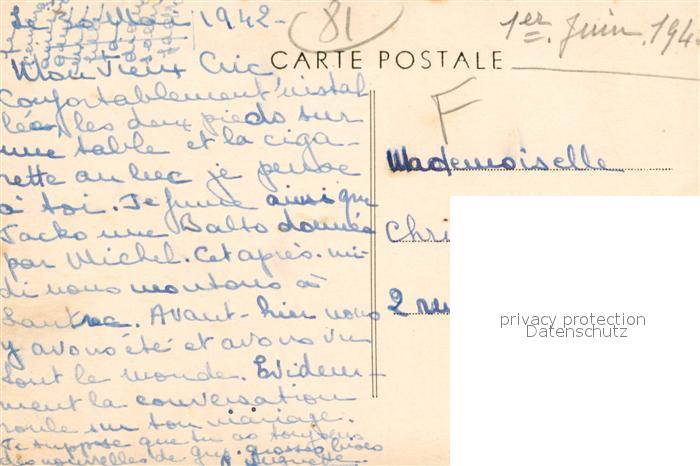 Le 30 Mai 1942-
81
1er Juin 194
CARTE POSTALE
F
Mon Vieux Cric,
Confortablement instal-
lées les deux pieds sur
une table et la ciga-
rette au bec je pense
à toi. Je fume ainsi que
Jacko une Balto donnée
par Michel. Cet après-mi-
di nous montons à
. Avant-hier nous
y avons été et avons vu
tout le monde. Evidem-
ment la conversation
roule sur ton mariage.
Je suppose que tu as toujours
des nouvelles de Guy. grosses bises
Mademoiselle
Chri
2 ru
privacy protection
Datenschutz